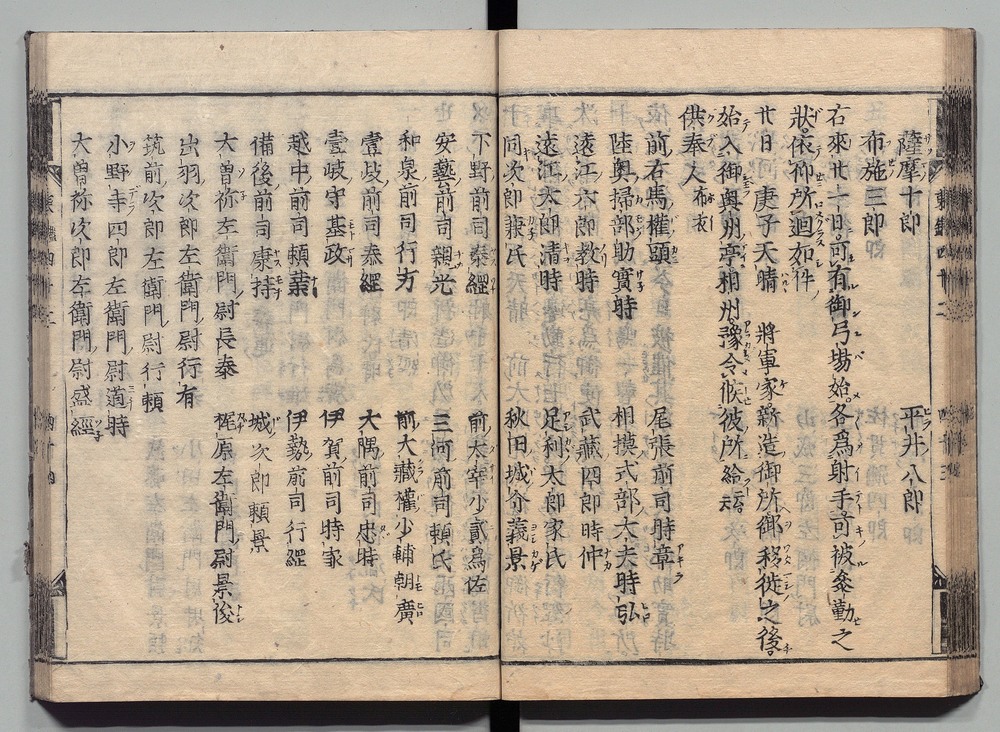 薩摩十郎　平井八郎
布施三郎
右來廿三日可有御弓場始各爲射手可被參勤之
狀依仰所廻如件
廿日　庚子天晴　將軍家新造御所御移徙之後
始入御奥州亭相州豫令候彼所給
供奉人布衣
前右馬權頭　尾張前司時章
陸奥掃部助實時　相摸式部大夫時弘
遠江六郎教時　武藏四郎時仲
遠江太郎清時　足利太郎家氏
同次郎兼氏　秋田城介義景
下野前司泰經　前太宰少貳爲佐
安藝前司親光　三河前司頼氏
和泉前司行方　前大藏權少輔朝廣
壹岐前司泰經　大隅前司忠時
壹岐守基政　伊賀前司時家
越中前司頼業　伊勢前司行經
備後前司康持　城次郎頼景
大曽祢左衛門尉長泰　梶原左衛門尉景俊
出羽次郎左衛門尉行有
筑前次郎左衛門尉行頼
小野寺四郎左衛門尉道時
大曽祢次郎左衛門尉盛經